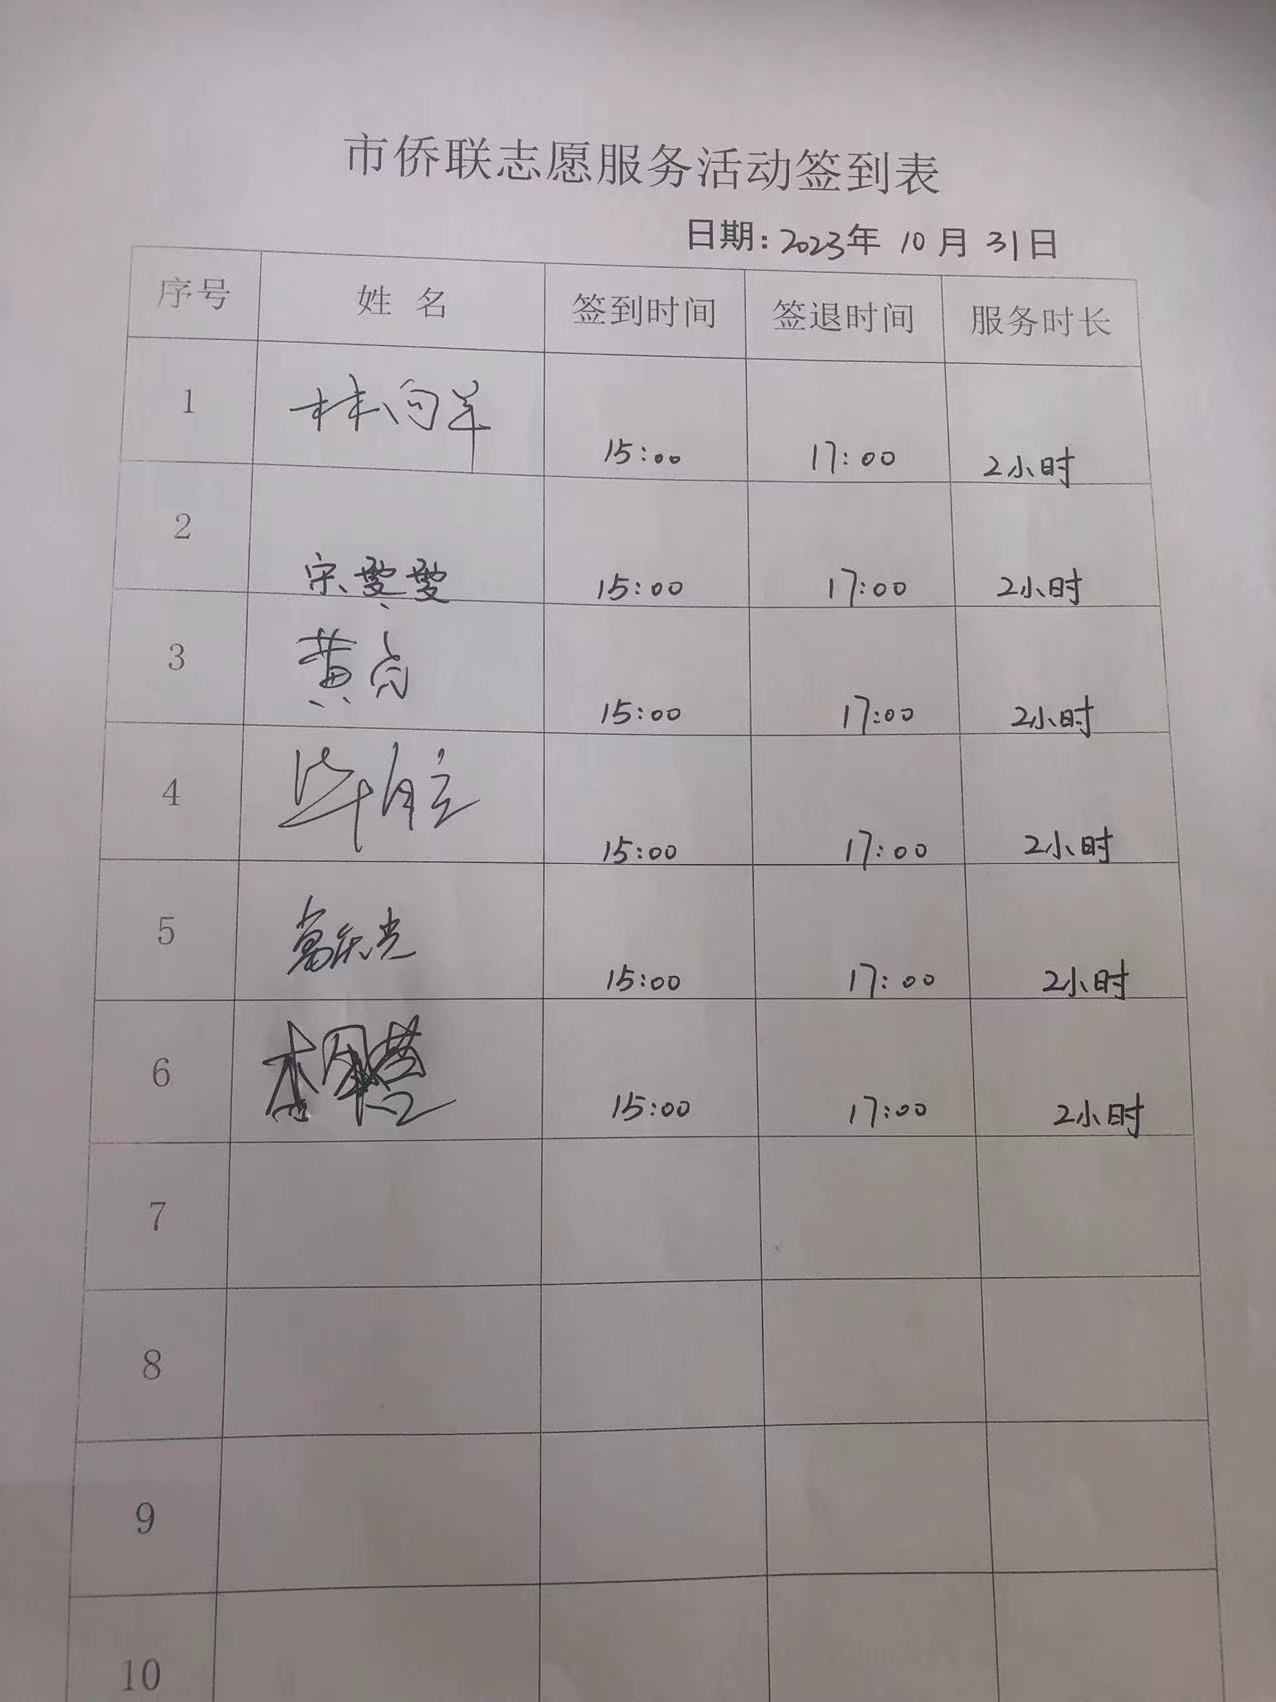 市侨联志愿服务活动签到表
日期: 2023年 10月 31日
序号 姓 名 签到时间 签退时间 服务时长
1 林向羊 15:00 17:00 2小时
2 宋雯雯 15:00 17:00 2小时
3 黄 15:00 17:00 2小时
4 15:00 17:00 2小时
5 15:00 17:00 2小时
6 15:00 17:00 2小时
7
8
9
10